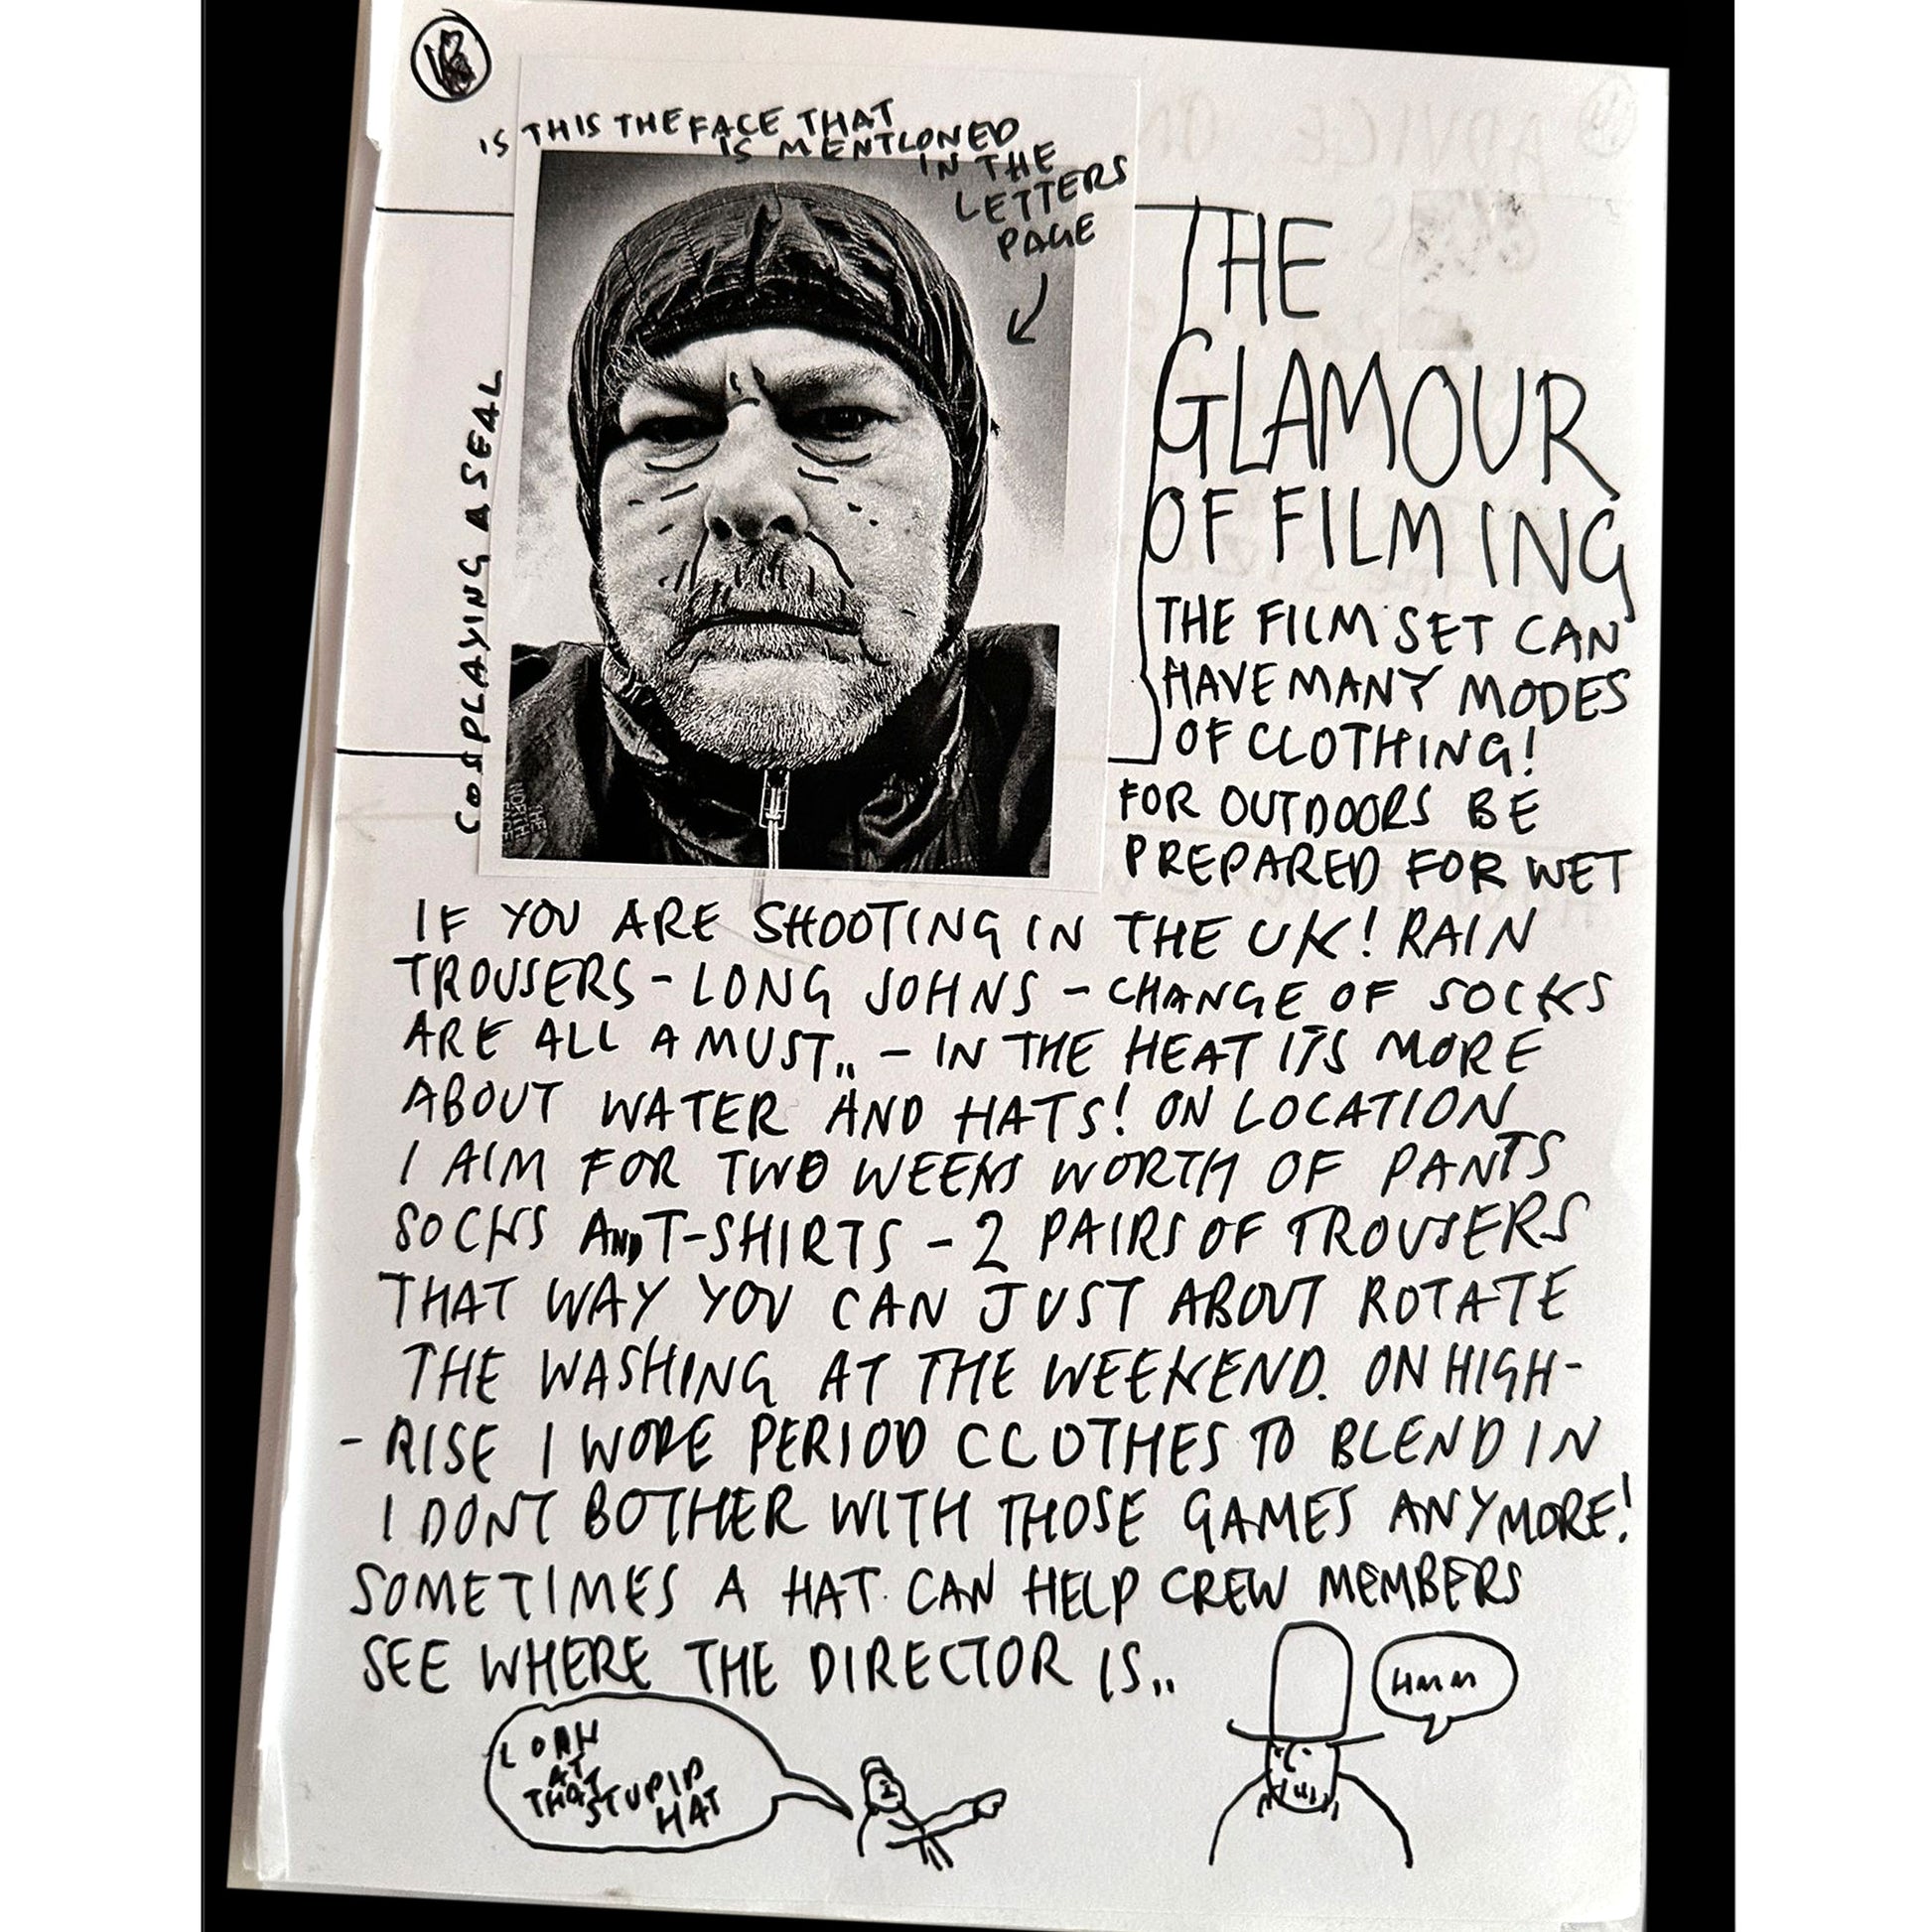 IS THIS THE FACE THAT
IS MENTIONED
IN THE
LETTERS
PAGE
COSPLAYING A SEAL
THE
NORTH
FACE
THE
GLAMOUR
OF FILMING
THE FILM SET CAN
HAVE MANY MODES
OF CLOTHING!
FOR OUTDOORS BE
PREPARED FOR WET
IF YOU ARE SHOOTING IN THE UK! RAIN
TROUSERS - LONG JOHNS - CHANGE OF SOCKS
ARE ALL A MUST.. - IN THE HEAT ITS MORE
ABOUT WATER AND HATS! ON LOCATION
I AIM FOR TWO WEEKS WORTH OF PANTS
SOCKS AND T-SHIRTS - 2 PAIRS OF TROUSERS
THAT WAY YOU CAN JUST ABOUT ROTATE
THE WASHING AT THE WEEKEND. ON HIGH-
- RISE I WORE PERIOD CLOTHES TO BLEND IN
I DONT BOTHER WITH THOSE GAMES ANYMORE!
SOMETIMES A HAT CAN HELP CREW MEMBERS
SEE WHERE THE DIRECTOR IS..
LOOK
AT
THAT
STUPID
HAT
HMM